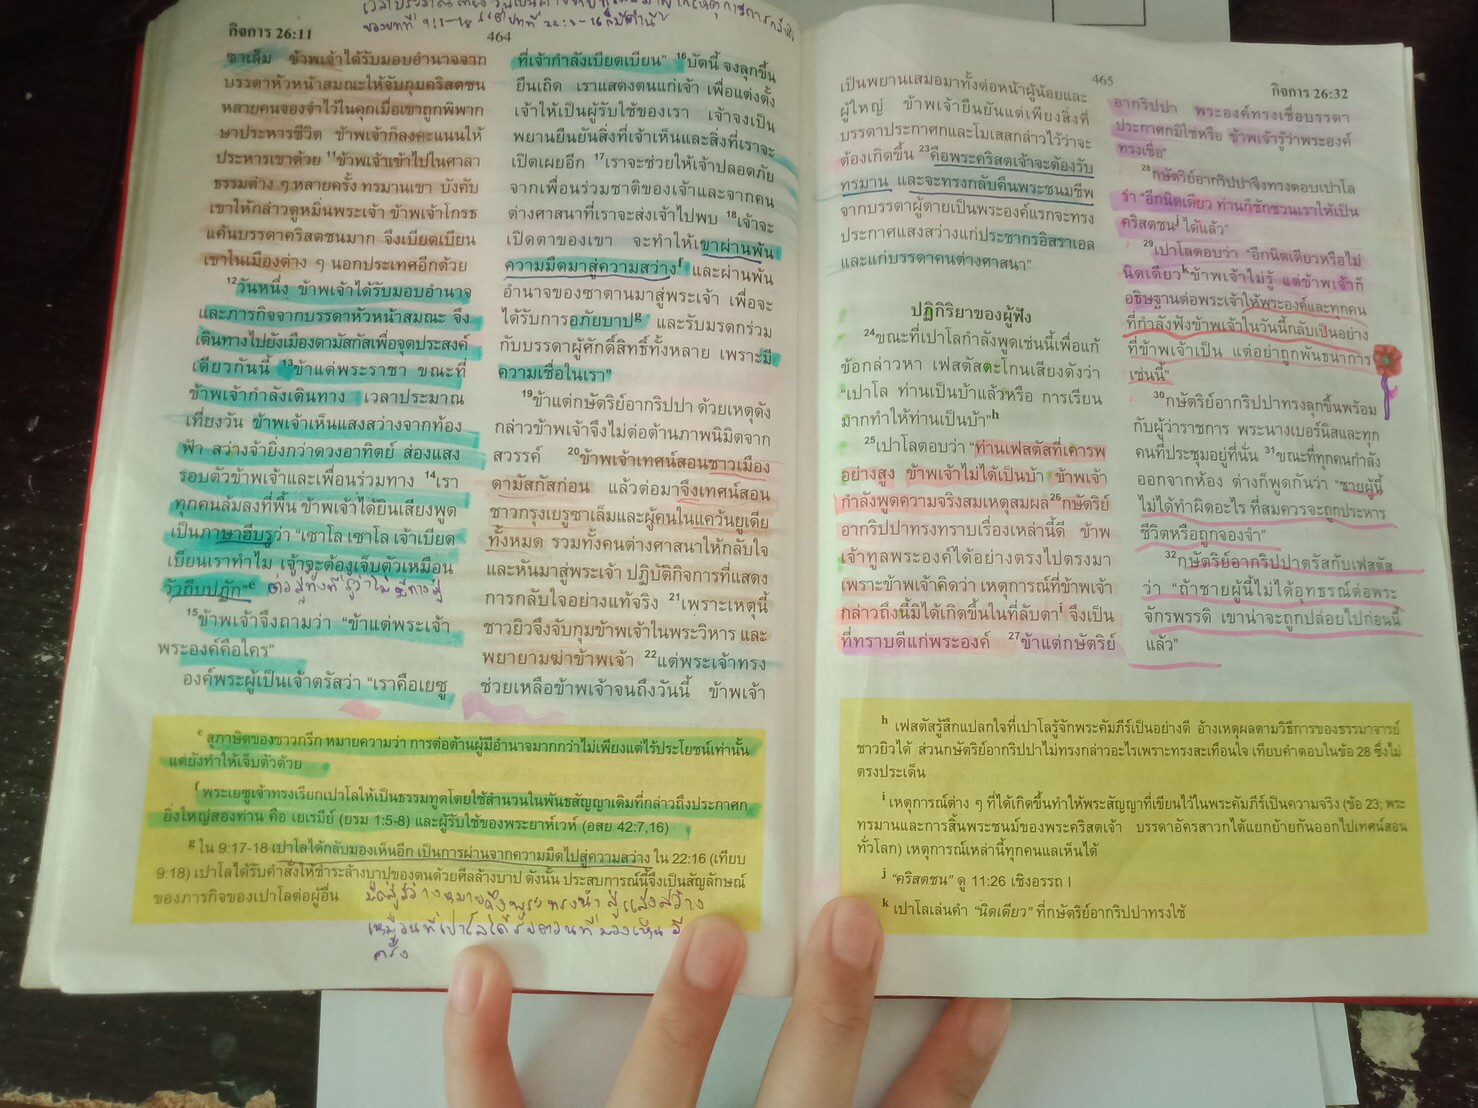 กิจการ 26:11
464
ซาเล็ม ข้าพเจ้าได้รับมอบอำนาจจาก
บรรดาหัวหน้าสมณะให้จับกุมคริสตชน
หลายคนจองจำไว้ในคุกเมื่อเขาถูกพิพาก
ษาประหารชีวิต ข้าพเจ้าก็ลงคะแนนให้
ประหารเขาด้วย 11ข้าพเจ้าเข้าไปในศาลา
ธรรมต่าง ๆ หลายครั้ง ทรมานเขา บังคับ
เขาให้กล่าวดูหมิ่นพระเจ้า ข้าพเจ้าโกรธ
แค้นบรรดาคริสตชนมาก จึงเบียดเบียน
เขาในเมืองต่าง ๆ นอกประเทศอีกด้วย
12วันหนึ่ง ข้าพเจ้าได้รับมอบอำนาจ
และภารกิจจากบรรดาหัวหน้าสมณะ จึง
เดินทางไปยังเมืองดามัสกัสเพื่อจุดประสงค์
เดียวกันนี้ 13ข้าแต่พระราชา ขณะที่
ข้าพเจ้ากำลังเดินทาง เวลาประมาณ
เที่ยงวัน ข้าพเจ้าเห็นแสงสว่างจากท้อง
ฟ้า สว่างจ้ายิ่งกว่าดวงอาทิตย์ ส่องแสง
รอบตัวข้าพเจ้าและเพื่อนร่วมทาง 14เรา
ทุกคนล้มลงที่พื้น ข้าพเจ้าได้ยินเสียงพูด
เป็นภาษาฮีบรูว่า “เซาโล เซาโล เจ้าเบียด
เบียนเราทำไม เจ้าจะต้องเจ็บตัวเหมือน
วัวถีบปฏัก”e ต่อสู้ทั้งที่รู้ว่าไม่มีทางสู้
15ข้าพเจ้าจึงถามว่า “ข้าแต่พระเจ้า
พระองค์คือใคร”
องค์พระผู้เป็นเจ้าตรัสว่า “เราคือเยซู
ที่เจ้ากำลังเบียดเบียน” 16บัดนี้ จงลุกขึ้น
ยืนเถิด เราแสดงตนแก่เจ้า เพื่อแต่งตั้ง
เจ้าให้เป็นผู้รับใช้ของเรา เจ้าจงเป็น
พยานยืนยันสิ่งที่เจ้าเห็นและสิ่งที่เราจะ
เปิดเผยอีก 17เราจะช่วยให้เจ้าปลอดภัย
จากเพื่อนร่วมชาติของเจ้าและจากคน
ต่างศาสนาที่เราจะส่งเจ้าไปพบ 18เจ้าจะ
เปิดตาของเขา จะทำให้เขาผ่านพ้น
ความมืดมาสู่ความสว่างf และผ่านพ้น
อำนาจของซาตานมาสู่พระเจ้า เพื่อจะ
ได้รับการอภัยบาปg และรับมรดกร่วม
กับบรรดาผู้ศักดิ์สิทธิ์ทั้งหลาย เพราะมี
ความเชื่อในเรา”
19ข้าแต่กษัตริย์อากริปปา ด้วยเหตุดัง
กล่าวข้าพเจ้าจึงไม่ต่อต้านภาพนิมิตจาก
สวรรค์ 20ข้าพเจ้าเทศน์สอนชาวเมือง
ดามัสกัสก่อน แล้วต่อมาจึงเทศน์สอน
ชาวกรุงเยรูซาเล็มและผู้คนในแคว้นยูเดีย
ทั้งหมด รวมทั้งคนต่างศาสนาให้กลับใจ
และหันมาสู่พระเจ้า ปฏิบัติกิจการที่แสดง
การกลับใจอย่างแท้จริง 21เพราะเหตุนี้
ชาวยิวจึงจับกุมข้าพเจ้าในพระวิหาร และ
พยายามฆ่าข้าพเจ้า 22แต่พระเจ้าทรง
ช่วยเหลือข้าพเจ้าจนถึงวันนี้ ข้าพเจ้า
e สุภาษิตของชาวกรีก หมายความว่า การต่อต้านผู้มีอำนาจมากกว่าไม่เพียงแต่ไร้ประโยชน์เท่านั้น
แต่ยังทำให้เจ็บตัวด้วย
f พระเยซูเจ้าทรงเรียกเปาโลให้เป็นธรรมทูตโดยใช้สำนวนในพันธสัญญาเดิมที่กล่าวถึงประกาศก
ยิ่งใหญ่สองท่าน คือ เยเรมีย์ (ยรม 1:5-8) และผู้รับใช้ของพระยาห์เวห์ (อสย 42:7,16)
g ใน 9:17-18 เปาโลได้กลับมองเห็นอีก เป็นการผ่านจากความมืดไปสู่ความสว่าง ใน 22:16 (เทียบ
9:18) เปาโลได้รับคำสั่งให้ชำระล้างบาปของตนด้วยศีลล้างบาป ดังนั้น ประสบการณ์นี้จึงเป็นสัญลักษณ์
ของภารกิจของเปาโลต่อผู้อื่น มืดสู่สว่างหมายถึงพระทรงนำสู่แสงสว่าง
เหมือนที่เปาโลได้รับ มองเห็นอีก
ครั้ง
465
กิจการ 26:32
เป็นพยานเสมอมาทั้งต่อหน้าผู้น้อยและ
ผู้ใหญ่ ข้าพเจ้ายืนยันแต่เพียงสิ่งที่
บรรดาประกาศกและโมเสสกล่าวไว้ว่าจะ
ต้องเกิดขึ้น 23คือพระคริสตเจ้าจะต้องรับ
ทรมาน และจะทรงกลับคืนพระชนมชีพ
จากบรรดาผู้ตายเป็นพระองค์แรกจะทรง
ประกาศแสงสว่างแก่ประชากรอิสราเอล
และแก่บรรดาคนต่างศาสนา”
ปฏิกิริยาของผู้ฟัง
24ขณะที่เปาโลกำลังพูดเช่นนี้เพื่อแก้
ข้อกล่าวหา เฟสตัสตะโกนเสียงดังว่า
“เปาโล ท่านเป็นบ้าแล้วหรือ การเรียน
มากทำให้ท่านเป็นบ้า”h
25เปาโลตอบว่า “ท่านเฟสตัสที่เคารพ
อย่างสูง ข้าพเจ้าไม่ได้เป็นบ้า ข้าพเจ้า
กำลังพูดความจริงสมเหตุสมผล 26กษัตริย์
อากริปปาทรงทราบเรื่องเหล่านี้ดี ข้าพ
เจ้าทูลพระองค์ได้อย่างตรงไปตรงมา
เพราะข้าพเจ้าคิดว่า เหตุการณ์ที่ข้าพเจ้า
กล่าวถึงนี้มิได้เกิดขึ้นในที่ลับตาi จึงเป็น
ที่ทราบดีแก่พระองค์ 27ข้าแต่กษัตริย์
อากริปปา พระองค์ทรงเชื่อบรรดา
ประกาศกมิใช่หรือ ข้าพเจ้ารู้ว่าพระองค์
ทรงเชื่อ”
28กษัตริย์อากริปปาจึงทรงตอบเปาโล
ว่า “อีกนิดเดียว ท่านก็ชักชวนเราให้เป็น
คริสตชนj ได้แล้ว”
29เปาโลตอบว่า “อีกนิดเดียวหรือไม่
นิดเดียวk ข้าพเจ้าไม่รู้ แต่ข้าพเจ้าก็
อธิษฐานต่อพระเจ้าให้พระองค์และทุกคน
ที่กำลังฟังข้าพเจ้าในวันนี้กลับเป็นอย่าง
ที่ข้าพเจ้าเป็น แต่อย่าถูกพันธนาการ
เช่นนี้”
30กษัตริย์อากริปปาทรงลุกขึ้นพร้อม
กับผู้ว่าราชการ พระนางเบอร์นิสและทุก
คนที่ประชุมอยู่ที่นั่น 31ขณะที่ทุกคนกำลัง
ออกจากห้อง ต่างก็พูดกันว่า “ชายผู้นี้
ไม่ได้ทำผิดอะไร ที่สมควรจะถูกประหาร
ชีวิตหรือถูกจองจำ”
32กษัตริย์อากริปปาตรัสกับเฟสตัส
ว่า “ถ้าชายผู้นี้ไม่ได้อุทธรณ์ต่อพระ
จักรพรรดิ เขาน่าจะถูกปล่อยไปก่อนนี้
แล้ว”
h เฟสตัสรู้สึกแปลกใจที่เปาโลรู้จักพระคัมภีร์เป็นอย่างดี อ้างเหตุผลตามวิธีการของธรรมาจารย์
ชาวยิวได้ ส่วนกษัตริย์อากริปปาไม่ทรงกล่าวอะไรเพราะทรงสะเทือนใจ เทียบคำตอบในข้อ 28 ซึ่งไม่
ตรงประเด็น
i เหตุการณ์ต่าง ๆ ที่ได้เกิดขึ้นทำให้พระสัญญาที่เขียนไว้ในพระคัมภีร์เป็นความจริง (ข้อ 23; พระ
ทรมานและการสิ้นพระชนม์ของพระคริสตเจ้า บรรดาอัครสาวกได้แยกย้ายกันออกไปเทศน์สอน
ทั่วโลก) เหตุการณ์เหล่านี้ทุกคนแลเห็นได้
j “คริสตชน” ดู 11:26 เชิงอรรถ l
k เปาโลเล่นคำ “นิดเดียว” ที่กษัตริย์อากริปปาทรงใช้